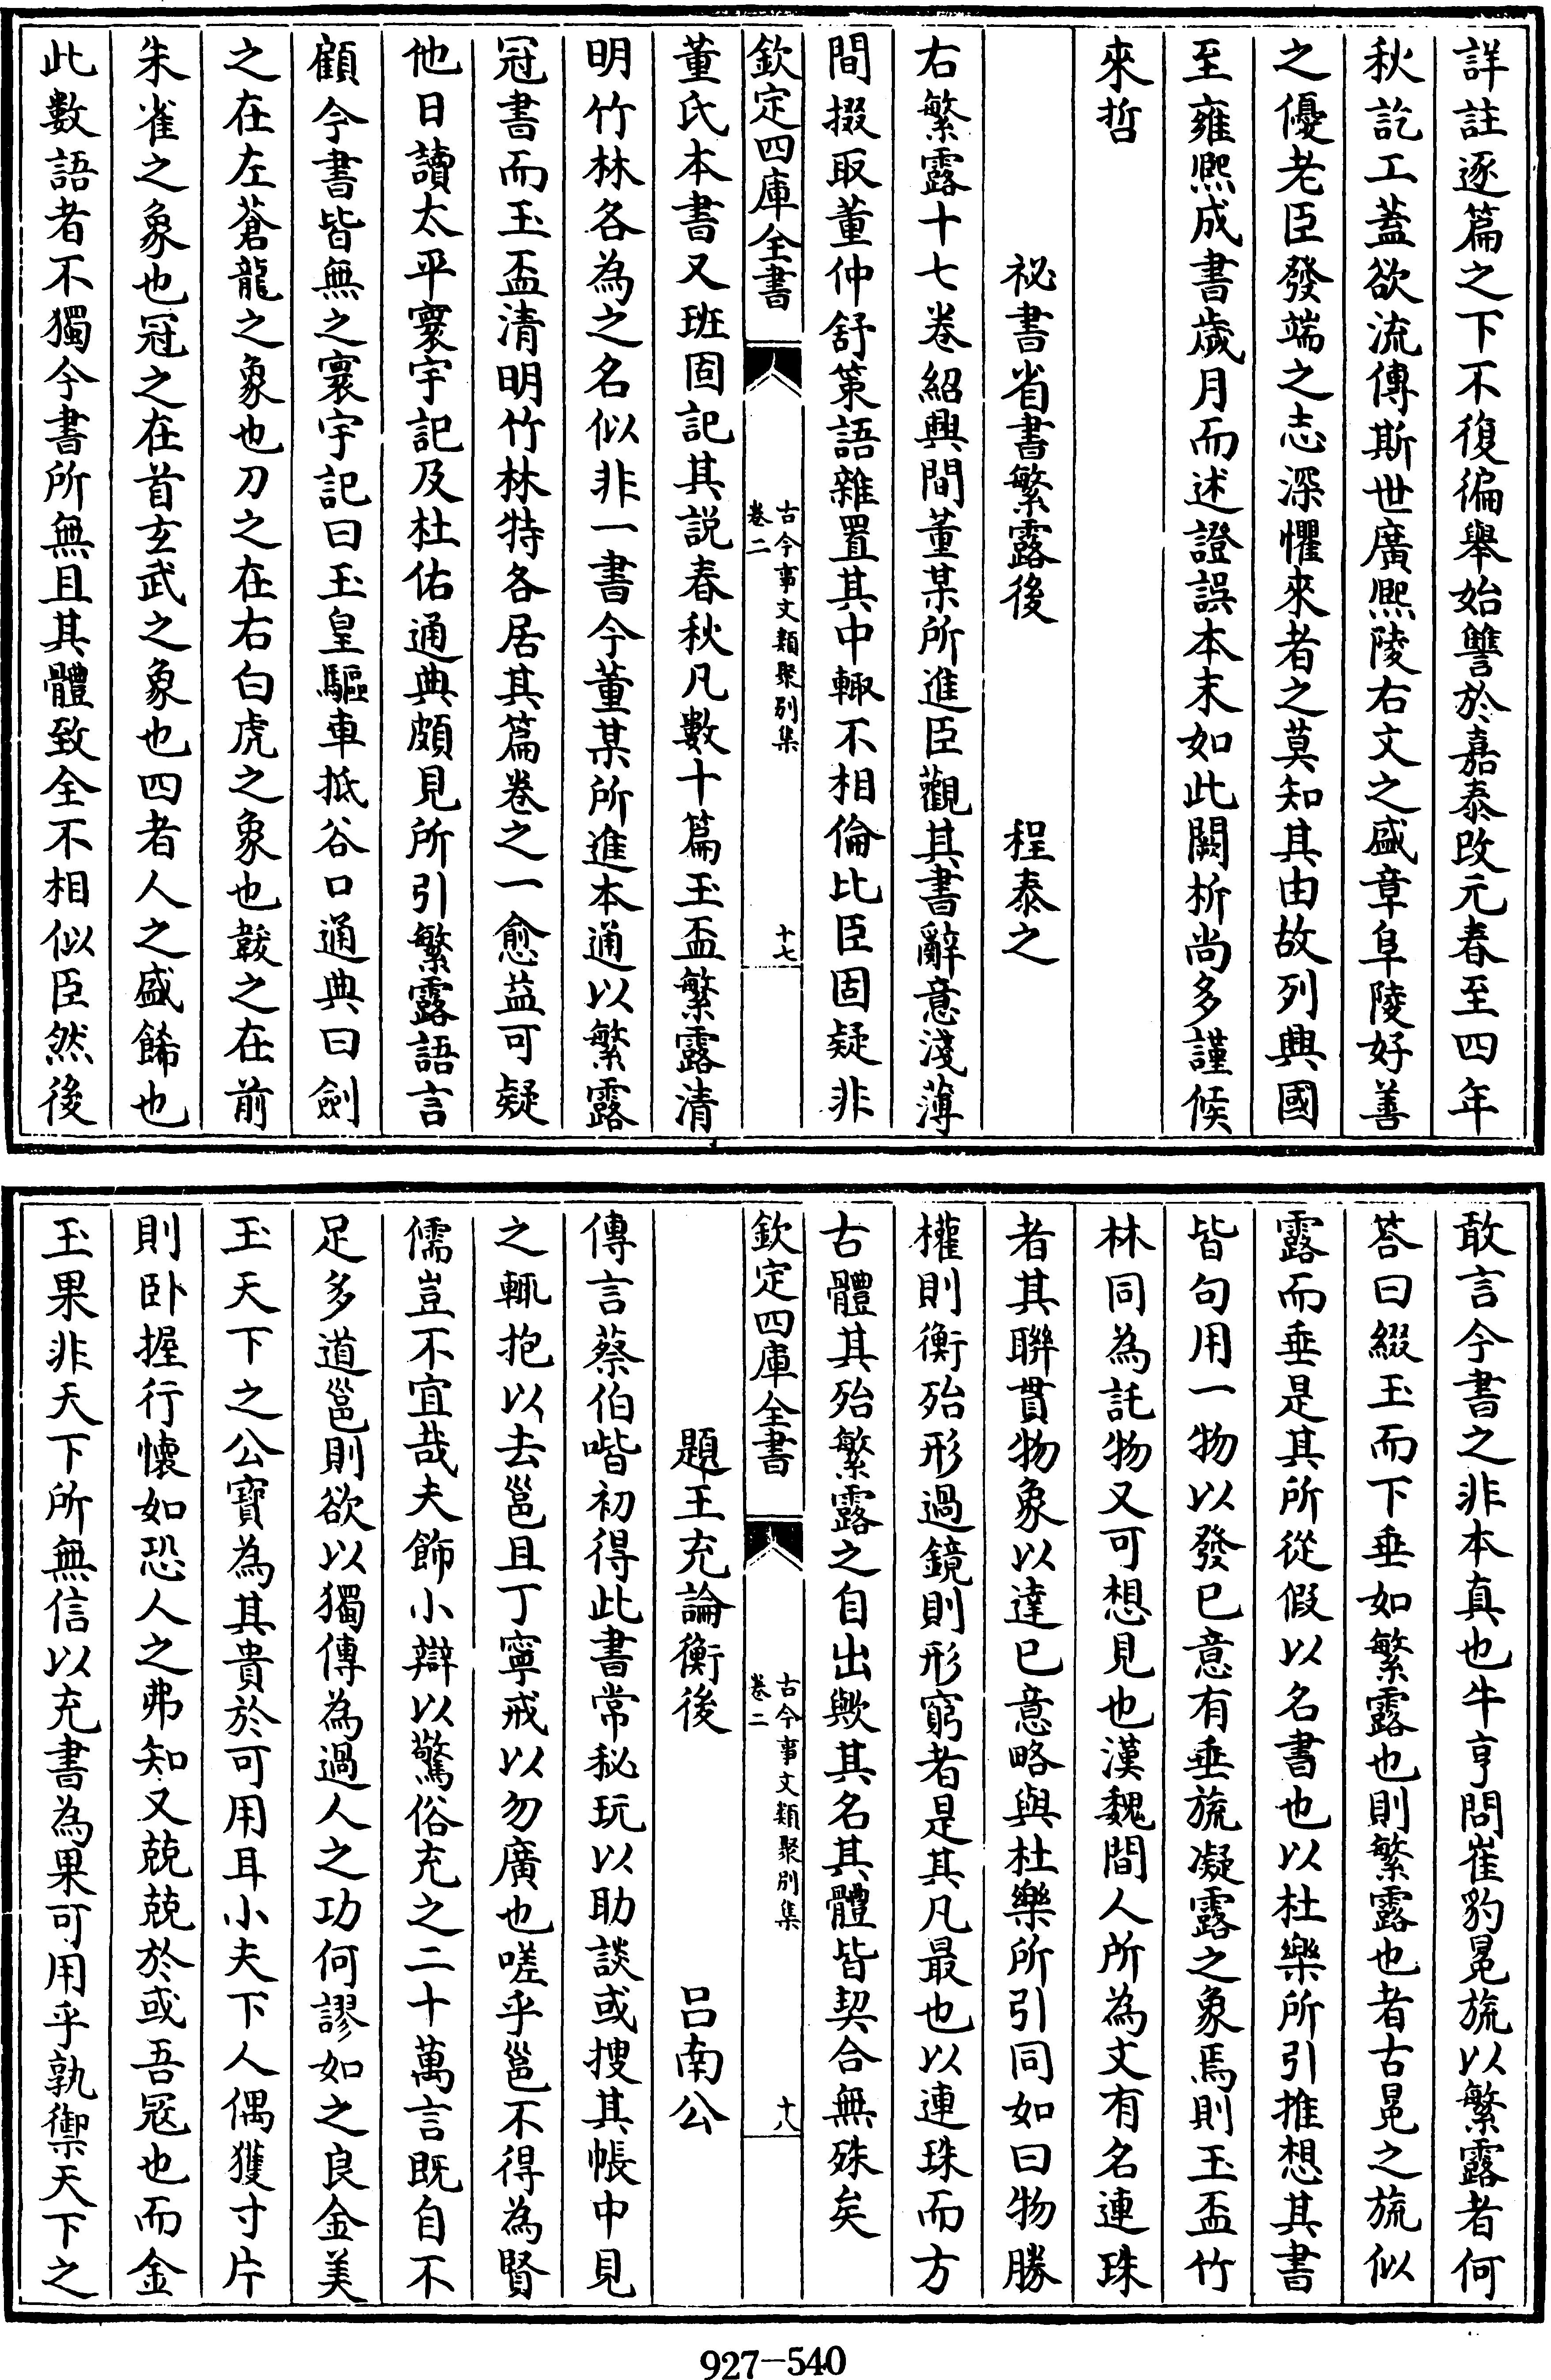 詳註逐篇之下不復徧舉始讐於嘉泰改元春至四年
秋訖工蓋欲流傳斯世廣熙陵右文之盛章阜陵好善
之優老臣發端之志深懼來者之莫知其由故列興國
至雍熙成書歲月而述證誤本末如此闕析尚多謹俟
來哲
祕書省書繁露後 程泰之
右繁露十七卷紹興間董某所進臣觀其書辭意淺薄
間掇取董仲舒策語雜置其中輙不相倫比臣固疑非
欽定四庫全書 古今事文類聚別集 卷二 十七
董氏本書又班固記其説春秋凡數十篇玉盃繁露清
明竹林各為之名似非一書今董某所進本通以繁露
冠書而玉盃清明竹林特各居其篇卷之一愈益可疑
他日讀太平寰宇記及杜佑通典頗見所引繁露語言
顧今書皆無之寰宇記曰玉皇驅車抵谷口通典曰劍
之在左蒼龍之象也刀之在右白虎之象也韍之在前
朱雀之象也冠之在首玄武之象也四者人之盛餙也
此數語者不獨今書所無且其體致全不相似臣然後
敢言今書之非本真也牛亨問崔豹冕旒以繁露者何
荅曰綴玉而下垂如繁露也則繁露也者古冕之旒似
露而垂是其所從假以名書也以杜樂所引推想其書
皆句用一物以發已意有垂旒凝露之象焉則玉盃竹
林同為託物又可想見也漢魏間人所為文有名連珠
者其聯貫物象以達已意略與杜樂所引同如曰物勝
權則衡殆形過鏡則形窮者是其凡最也以連珠而方
古體其殆繁露之自出歟其名其體皆契合無殊矣
欽定四庫全書 古今事文類聚別集 卷二 十八
題王充論衡後 呂南公
傳言蔡伯喈初得此書常秘玩以助談或搜其帳中見
之輒抱以去邕且丁寧戒以勿廣也嗟乎邕不得為賢
儒豈不宜哉夫飾小辯以驚俗充之二十萬言既自不
足多道邕則欲以獨傳為過人之功何謬如之良金美
玉天下之公寶為其貴於可用耳小夫下人偶獲寸片
則卧握行懷如恐人之弗知又兢兢於或吾冦也而金
玉果非天下所無信以充書為果可用乎孰禦天下之
927-540